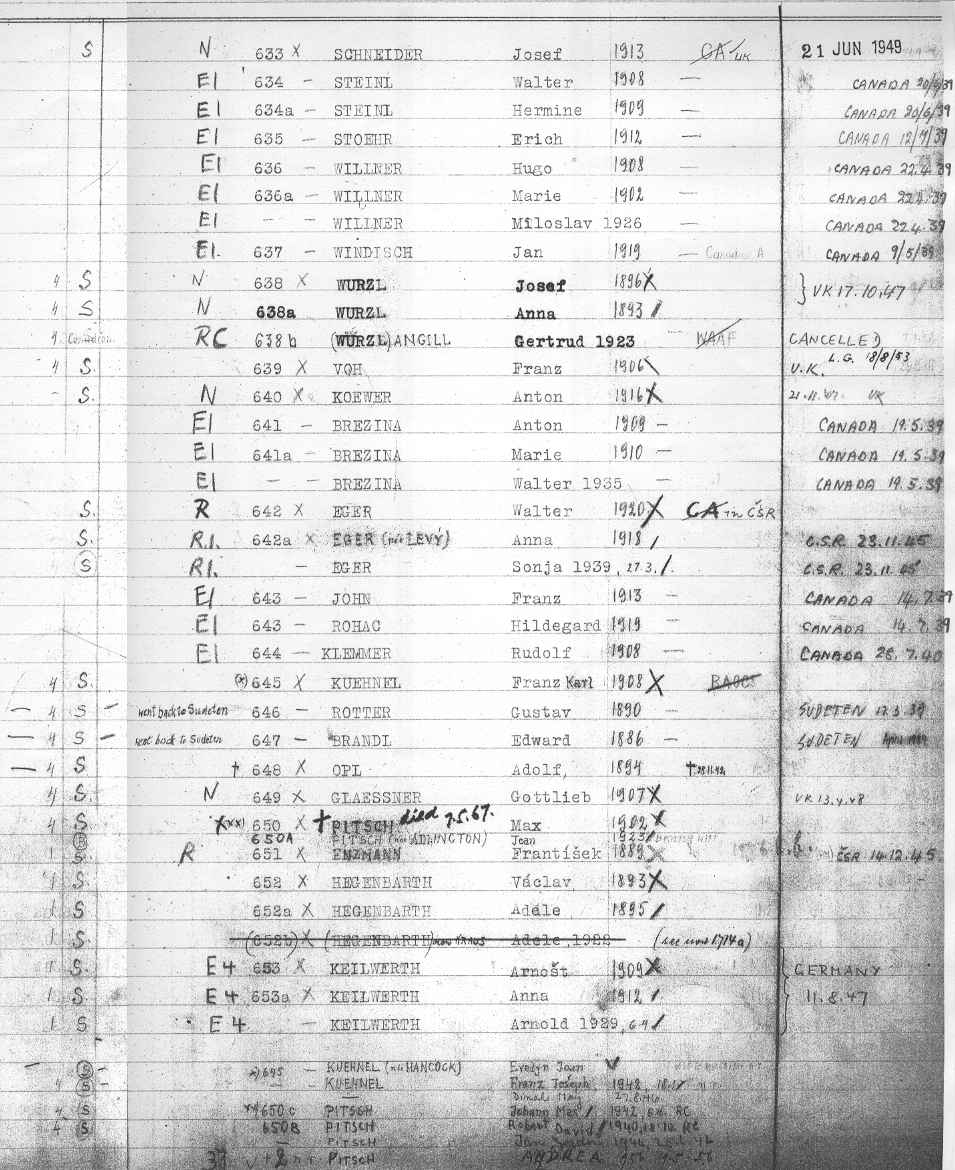 S N 633 X SCHNEIDER Josef 1913 CA UK 21 JUN 1949
E1 634 - STEINL Walter 1908 — CANADA 20/6/39
E1 634a - STEINL Hermine 1909 — CANADA 20/6/39
E1 635 - STOEHR Erich 1912 — CANADA 12/7/39
E1 636 - WILLNER Hugo 1908 CANADA 22.4.39
E1 636a - WILLNER Marie 1902 — CANADA 22.4.39
E1 - - WILLNER Miloslav 1926 — CANADA 22.4.39
E1. 637 - WINDISCH Jan 1919 — CANADA 9/5/39
4 S N 638 X WURZL Josef 1896 X } VK 17.10.47
4 S N 638a WURZL Anna 1893 /
RC 638b (WURZL) ANGILL Gertrud 1923 WAAF CANCELLED
4 S 639 X VOH Franz 1906 \ U.K. L.G. 18/8/53
- S. N 640 X KOEWER Anton 1916 X UK
E1 641 - BREZINA Anton 1909 - CANADA 19.5.39
E1 641a - BREZINA Marie 1910 — CANADA 19.5.39
E1 - - BREZINA Walter 1935 CANADA 19.5.39
S. R 642 X EGER Walter 1920 X CA in ČSR
S. R.1. 642a X EGER (née LEVÝ) Anna 1918 / C.S.R. 23.11.45
S R1. - EGER Sonja 1939, 27.3. / C.S.R. 23.11.45
E1 643 - JOHN Franz 1913 — CANADA 14.7.39
E1 643 - ROHAC Hildegard 1919 — CANADA 14.7.39
E1 644 — KLEMMER Rudolf 1908 — CANADA 26.7.40
4 S. (x) 645 X KUEHNEL Franz Karl 1908 X
— 4 S - went back to Sudeten 646 - ROTTER Gustav 1890 — SUDETEN 17.3.39
— 4 S - went back to Sudeten 647 - BRANDL Edward 1886 — SUDETEN
— 4 S † 648 X OPL Adolf, 1894 † 28.11.42
4 S. N 649 X GLAESSNER Gottlieb 1907 X VK 13.4.48
4 S xx) 650 X † PITSCH died 7.5.67. Max 1902 X
650A PITSCH (née ADLINGTON) Jean 1923
1 S. R 651 X ENZMANN František 1889 X ČSR 14.12.45
1 S 652 X HEGENBARTH Václav 1893 X
1 S 652a X HEGENBARTH Adéle 1895 /
1 S. (652b) X (HEGENBARTH) now KRAUS Adele, 1922 (see now 1714a)
1 S. E4 653 X KEILWERTH Arnošt 1909 X { GERMANY
1 S. E4 653a X KEILWERTH Anna 1912 / 11.8.47
1 S E4 - KEILWERTH Arnold 1929, 6.4 /
- S x) 645 - KUEHNEL (née HANCOCK) Evelyn Joan
4 S - KUEHNEL Franz Joseph 1948, 18.1
— 27.8.46
4 S 650c PITSCH Johann Max / 1942, RC
4 S 650B PITSCH Robert David / 1940, 18.12 RC
— PITSCH 1946
PITSCH ANDREA